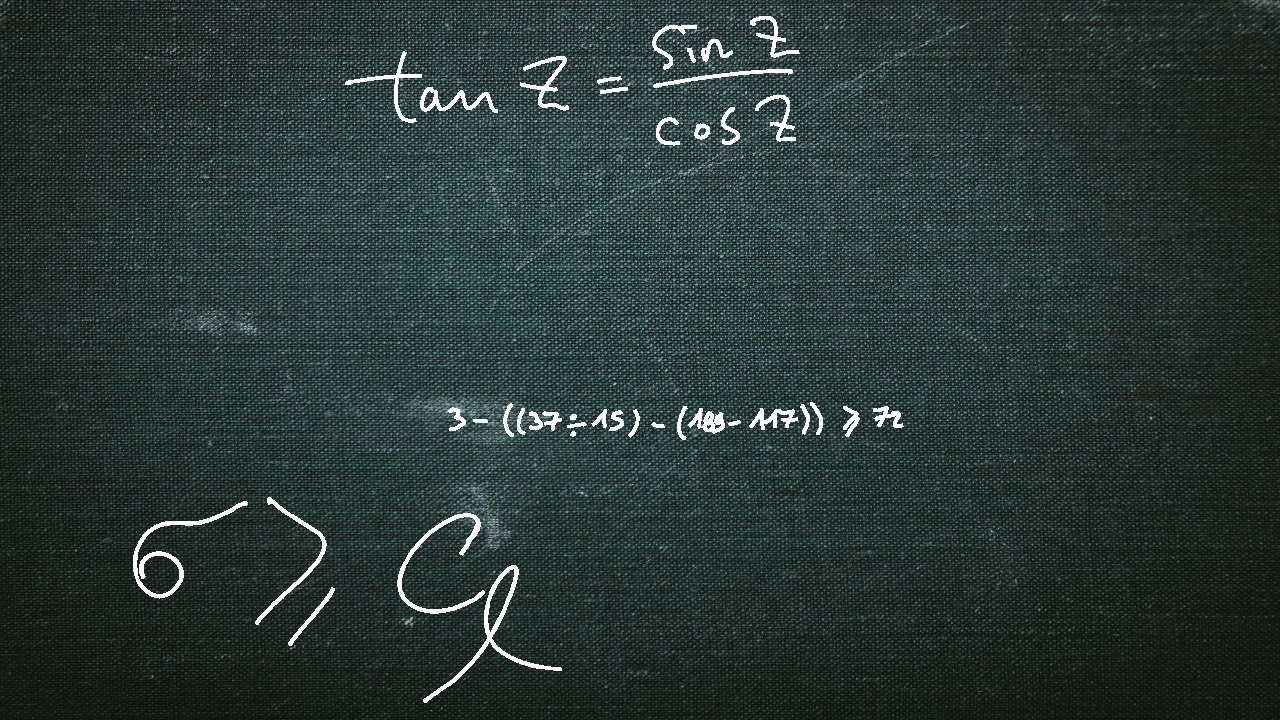 tan z = sin z / cos z
3 - ((37 ÷ 15) - (188 - 117)) ⩾ 72
σ ⩾ C_l